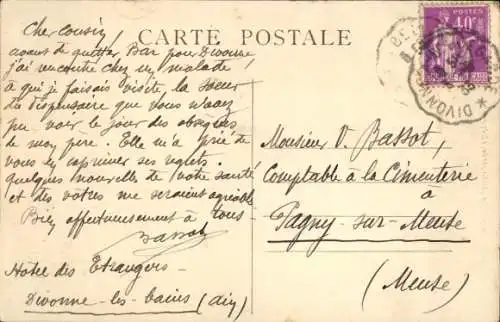 CARTE POSTALE
Cher Cousin,
avant de quitter Bar pour Divonne
j'ai rencontré chez un malade,
à qui je faisais visite, la sœur
du dispensaire que vous n'avez
pu voir le jour des obsèques
de mon père. Elle m'a prié de
vous exprimer ses regrets.
Quelques nouvelles de votre santé
et des vôtres me seraient agréables
Bien affectueusement à tous
Bassot
Hôtel des Etrangers
Divonne-les-bains (Ain)
POSTES
40c
DIVONNE
Monsieur V. Bassot,
Comptable à la Cimenterie
à
Pagny-sur-Meuse
(Meuse)